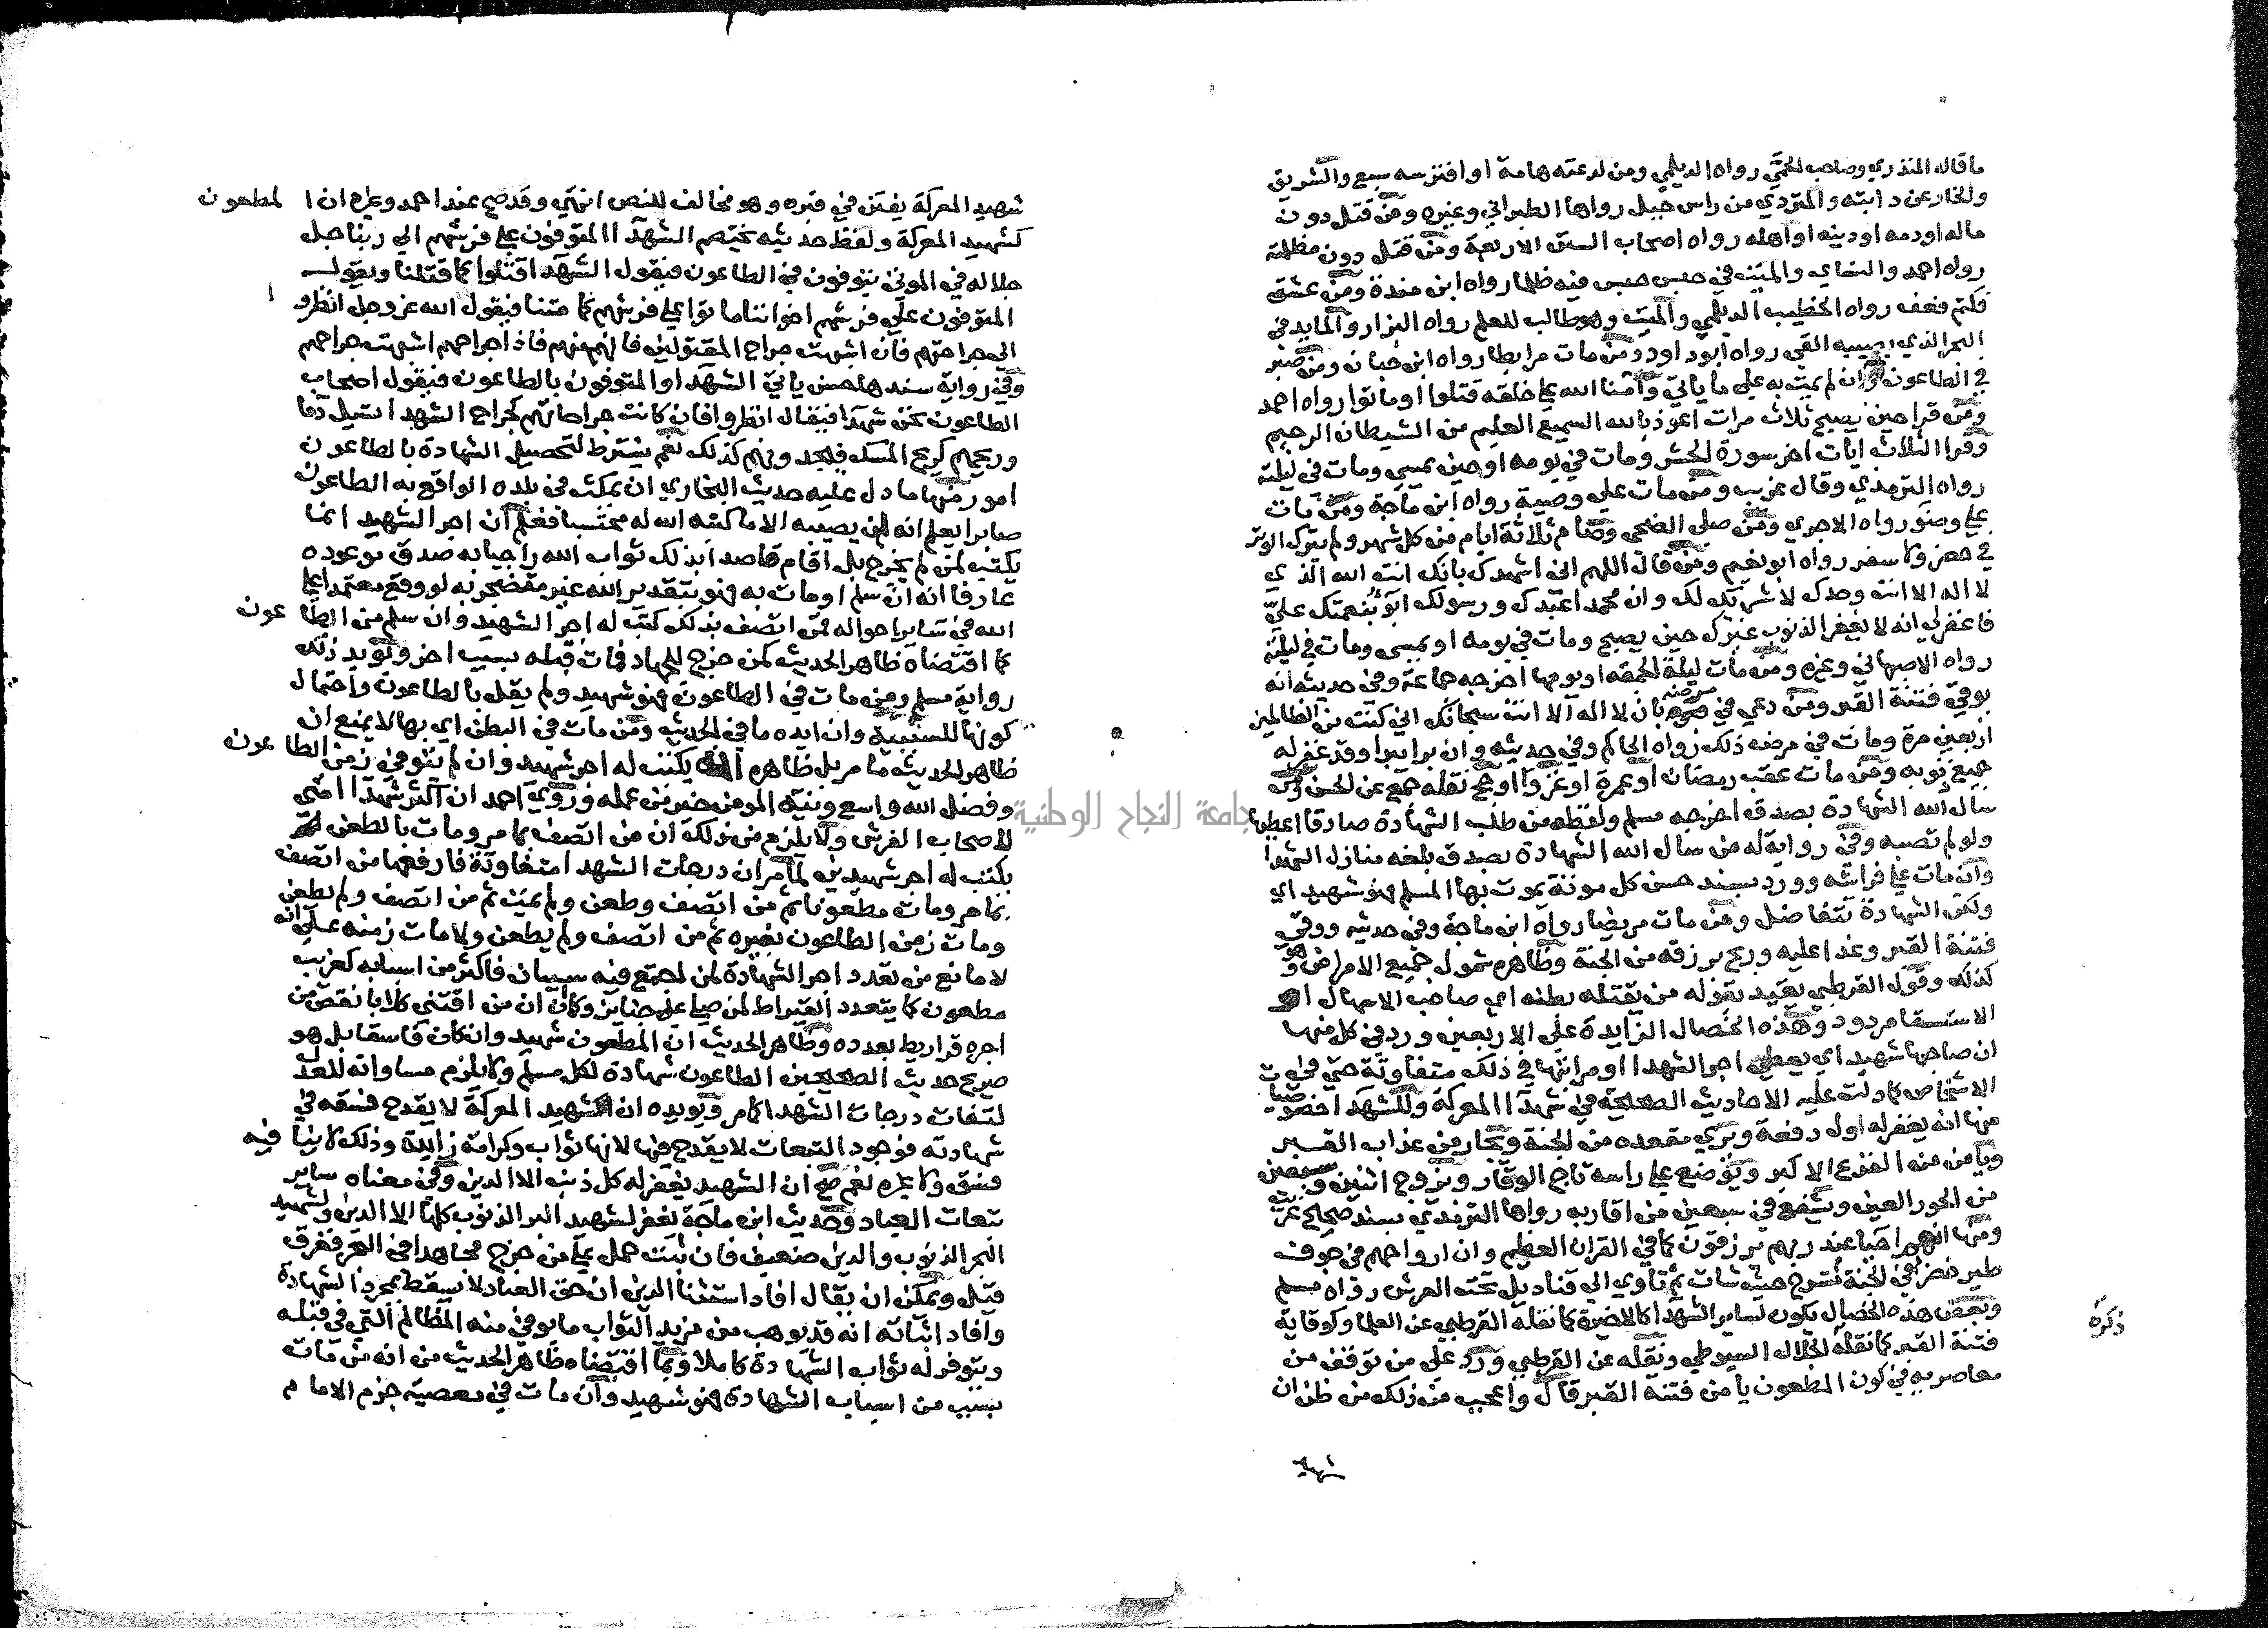 ما قاله المنذري وصاحب الحمى رواه الديلمي ومن لدغته هامة او افترسه سبع والشريق
والخار عن دابته والمتردي من راس جبل رواها الطبراني وغيره ومن قتل دون
ماله او دمه او دينه او اهله رواه اصحاب السنن الاربعة ومن قتل دون مظلمته
رواه احمد والنساي والميت في حبس حبس فيه ظلما رواه ابن مندة ومن عشق
فكتم فعف رواه الخطيب الديلمي والميت وهو طالب للعلم رواه البزار والمايد في
البحر الذي يصيبه القي رواه ابو داود ومن مات مرابطا رواه ابن حبان ومن صبر
في الطاعون وان لم يمت به على ما ياتي وامنا الله على خلقه قتلوا او ماتوا رواه احمد
ومن قرا حين يصبح ثلاث مرات اعوذ بالله السميع العليم من الشيطان الرجيم
وقرا الثلاث ايات اخر سورة الحشر ومات في يومه او حين يمسي ومات في ليلته
رواه الترمذي وقال غريب ومن مات على وصية رواه ابن ماجة ومن مات
على وضو رواه الاجري ومن صلى الضحى وصام ثلاثة ايام من كل شهر ولم يترك الوتر
في حضر ولا سفر رواه ابو نعيم ومن قال اللهم اني اشهدك بانك انت الله الذي
لا اله الا انت وحدك لا شريك لك وان محمدا عبدك ورسولك ابوء بنعمتك علي
فاغفر لي انه لا يغفر الذنوب غيرك حين يصبح ومات في يومه او يمسي ومات في ليلته
رواه الاصبهاني وغيره ومن مات ليلة الجمعة او يومها اخرجه جماعة وفي حديثه انه
يوقى فتنة القبر ومن دعي في مرضه بان لا اله الا انت سبحانك اني كنت من الظالمين
اربعين مرة ومات في مرضه ذلك رواه الحاكم وفي حديثه وان برا برا وقد غفر له
جميع ذنوبه ومن مات عقب رمضان او عمرة او غزو او حج نقله جمع عن الحسن ومن
سال الله الشهادة بصدق اخرجه مسلم ولفظه من طلب الشهادة صادقا اعطيها
ولو لم تصبه وفي رواية له من سال الله الشهادة بصدق بلغه منازل الشهدا
وان مات على فراشه وورد بسند حسن كل موتة يموت بها المسلم فهو شهيد اي
ولكن الشهادة تتفاضل ومن مات مريضا رواه ابن ماجة وفي حديثه ووقي
فتنة القبر وغدا عليه وريح برزقه من الجنة وظاهره شمول جميع الامراض وهو
كذلك وقول القرطبي يقيد بقوله من يقتله بطنه اي صاحب الاسهال او
الاستسقا مردود وهذه الخصال الزايدة على الاربعين ورد في كل منها
ان صاحبها شهيد اي يعطي اجر الشهدا او مراتبها في ذلك متفاوتة حتى في حق
الاشخاص كما دلت عليه الاحاديث الصحيحة في شهدا المعركة وللشهدا خصوصيات
منها انه يغفر له اول دفعة ويرى مقعده من الجنة ويجار من عذاب القبر
ويامن من الفزع الاكبر ويوضع على راسه تاج الوقار ويزوج اثنين وسبعين
من الحور العين ويشفع في سبعين من اقاربه رواها الترمذي بسند صحيح غريب
ومنها انهم احيا عند ربهم يرزقون كما في القران العظيم وان ارواحهم في جوف
طير خضر في الجنة تسرح حيث شات ثم تاوي الى قناديل تحت العرش رواه مسلم
وبعض هذه الخصال يكون لساير الشهدا كالاخيرة كما نقله القرطبي عن العلما وكوقاية
ذكره
فتنة القبر كما نقله الجلال السيوطي ونقله عن القرطبي ورد على من توقف من
معاصريه في كون المطعون يامن فتنة القبر قال واعجب من ذلك من ظن ان
شهيد
شهيد المعركة يفتن في قبره وهو مخالف للنص انتهى وقد صح عند احمد وغيره ان المطعون
كشهيد المعركة ولفظ حديثه يختصم الشهدا المتوفون على فرشهم الى ربنا جل
جلاله في الموتى يتوفون في الطاعون فيقول الشهدا قتلوا كما قتلنا ويقول
المتوفون على فرشهم اخواننا ماتوا على فرشهم كما متنا فيقول الله عز وجل انظروا
الى جراحتهم فان اشبهت جراح المقتولين فانهم منهم فاذا جراحهم اشبهت جراحهم
وفي رواية سندها حسن ياتي الشهدا والمتوفون بالطاعون فيقول اصحاب
الطاعون نحن شهدا فيقال انظروا فان كانت جراحاتهم كجراح الشهدا تسيل دما
وريحهم كريح المسك فيجدونهم كذلك نعم يشترط لتحصيل الشهادة بالطاعون
امور منها ما دل عليه حديث البخاري ان يمكث في بلده الواقع به الطاعون
صابرا يعلم انه لن يصيبه الا ما كتبه الله له محتسبا فعلم ان اجر الشهيد انما
يكتب لمن لم يخرج بل اقام قاصدا بذلك ثواب الله راجيا به صدق موعوده
عارفا انه ان سلم او مات به فهو بتقدير الله غير متضجر به لو وقع معتمدا على
الله في ساير احواله فمن اتصف بذلك كتب له اجر الشهيد وان سلم من الطاعون
كما اقتضاه ظاهر الحديث كمن خرج للجهاد فمات قبله بسبب اخر ويويد ذلك
رواية مسلم ومن مات في الطاعون فهو شهيد ولم يقل بالطاعون واحتمال
كونها للسببية وان ايده ما في الحديث ومن مات في البطن اي بها لا يمنع ان
ظاهر الحديث ما مر بل ظاهره انه يكتب له اجر شهيد وان لم يتوفى زمن الطاعون
وفضل الله واسع ونية المومن خير من عمله وروى احمد ان اكثر شهدا امتي
لاصحاب الفرش ولا يلزم من ذلك ان من اتصف بما مر ومات بالطعن
يكتب له اجر شهيدين لما مر ان درجات الشهدا متفاوتة فارفعها من اتصف
بما مر ومات مطعونا ثم من اتصف وطعن ولم يمت ثم من اتصف ولم يطعن
ومات زمن الطاعون بغيره ثم من اتصف ولم يطعن ولا مات زمنه على انه
لا مانع من تعدد اجر الشهادة لمن اجتمع فيه سببان فاكثر من اسبابه كغريب
مطعون كما يتعدد القيراط لمن صلى على جنايز وكما ان من اقتنى كلابا نقص من
اجره قراريط بعدده وظاهر الحديث ان المطعون شهيد وان كان فاسقا بل هو
صريح حديث الصحيحين الطاعون شهادة لكل مسلم ولا يلزم مساواته للعدل
لتفاوت درجات الشهدا كما مر ويويده ان شهيد المعركة لا يقدح فسقه في
شهادته فوجود التبعات لا يقدح فيها لانها ثواب وكرامة زايدة وذلك لا ينافيه
فسق ولا غيره نعم صح ان الشهيد يغفر له كل ذنب الا الدين وفي معناه ساير
تبعات العباد وحديث ابن ماجة يغفر لشهيد البر الذنوب كلها الا الدين ولشهيد
البحر الذنوب والدين ضعيف فان ثبت حمل على من خرج مجاهدا في البحر فغرق
قيل ويمكن ان يقال افاد استثنا الدين ان حق العباد لا يسقط بمجرد الشهادة
وافاد اثباته انه قد يوهب من مزيد الثواب ما يوفي منه المظالم التي في قبله
ويتوفر له ثواب الشهادة كاملا وبما اقتضاه ظاهر الحديث من انه من مات
بسبب من اسباب الشهادة فهو شهيد وان مات في معصية جزم الامام
جامعة النجاح الوطنية